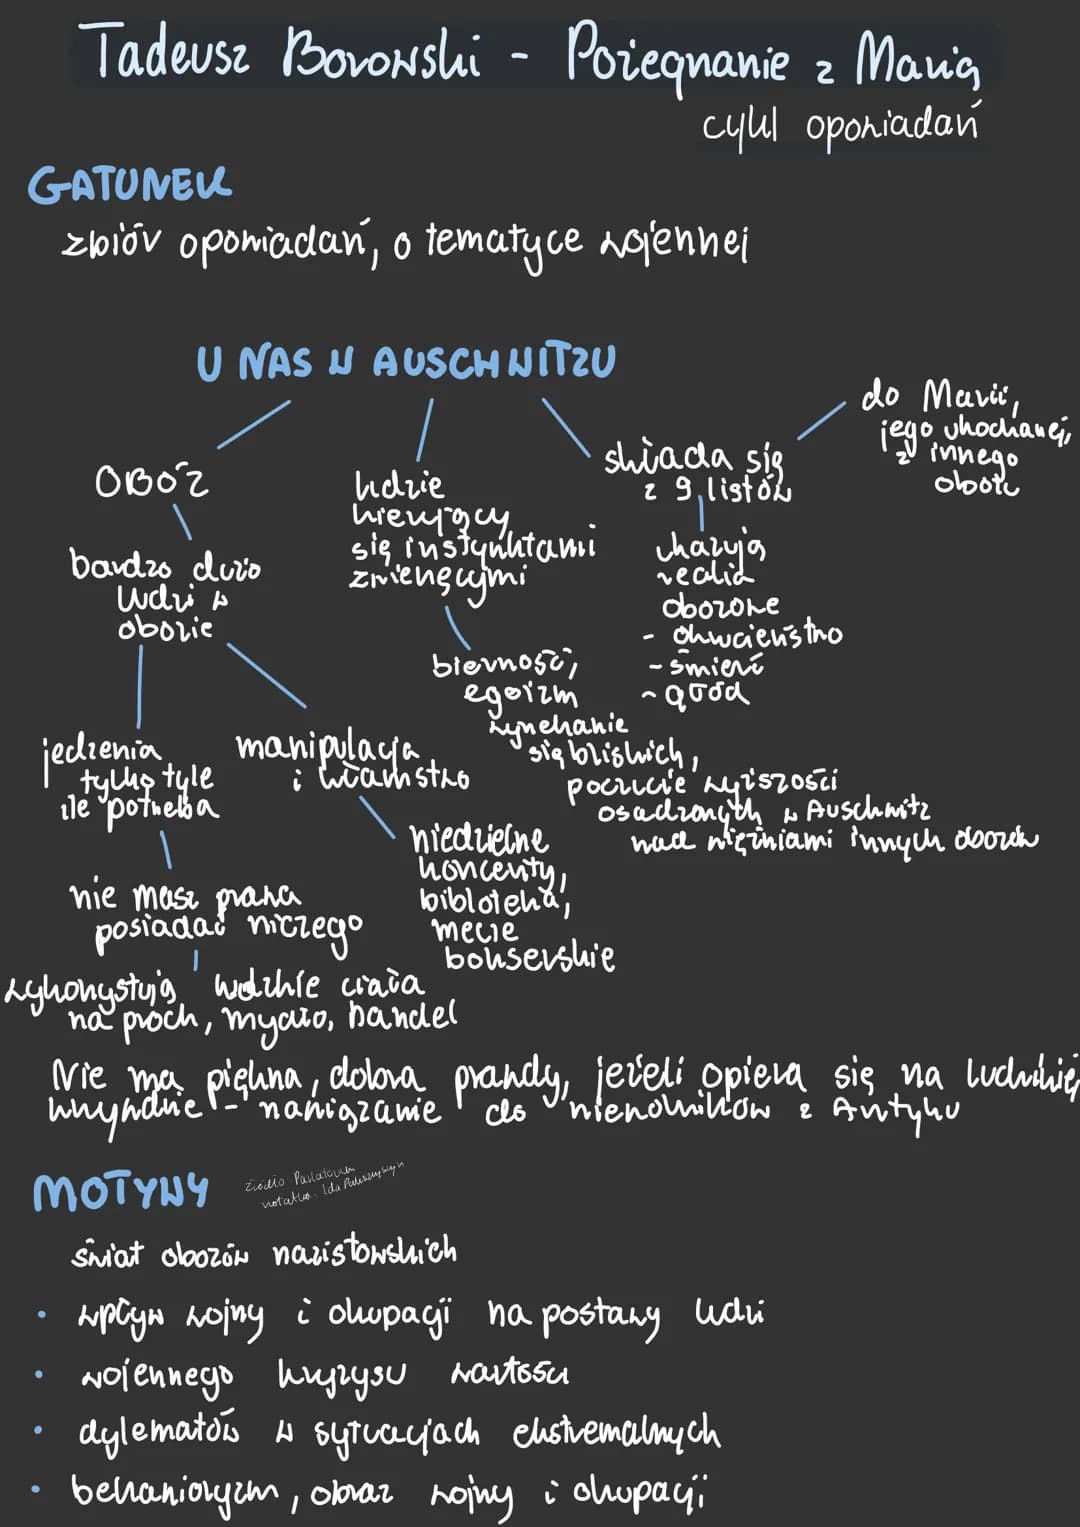 Tadeusz Borowski - Pożegnanie z Marią
cykl opowiadań
GATUNEK
zbiór opowiadań, o tematyce wojennej
U NAS W AUSCHWITZU
OBÓZ
bardzo dużo
ludzi w
obozie
jedzenia
tylko tyle
ile potrzeba
nie masz prawa
posiadać niczego
wykorzystują ludzkie ciała
na proch, mydło, handel
manipulacja
i kłamstwo
niedzielne
koncerty,
biblioteka,
mecze
bokserskie
ludzie
kierujący
się instynktami
zwierzęcymi
bierność,
egoizm
wyrzekanie
się bliskich,
poczucie wyższości
osadzonych w Auschwitz
nad więźniami innych obozów
składa się
z 9 listów
do Marii,
jego ukochanej,
z innego
obozu
ukazują
realia
obozowe
- okrucieństwo
- śmierć
- głód
Nie ma piękna, dobra prawdy, jeżeli opiera się na ludzkiej
krzywdzie - nawiązanie do niewolników z Antyku
MOTYWY
źródło
notatka: Ida
świat obozów nazistowskich
• wpływ wojny i okupacji na postawy ludzi
• wojennego kryzysu wartości
• dylematów w sytuacjach ekstremalnych
• behawioryzm, obraz wojny i okupacji